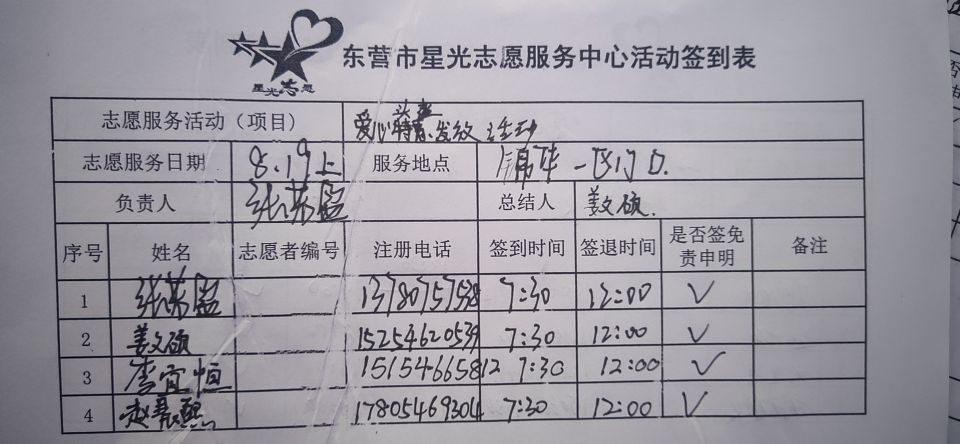 星光志愿
东营市星光志愿服务中心活动签到表
志愿服务活动（项目） 爱心 发放活动
志愿服务日期 8.19上 服务地点 锦华一区门口.
负责人 张 盈 总结人 姜文硕.
序号 姓名 志愿者编号 注册电话 签到时间 签退时间 是否签免责申明 备注
1 张 盈 13780757538 7:30 12:00 ✓
2 姜文硕 15254620539 7:30 12:00 ✓
3 李宜恒 15154665812 7:30 12:00 ✓
4 赵嘉熙 17805469304 7:30 12:00 ✓